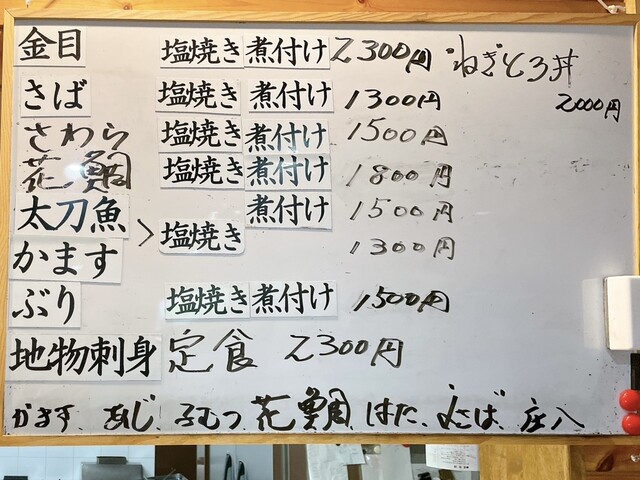 金目 塩焼き 煮付け 2300円 ねぎとろ丼
さば 塩焼き 煮付け 1300円 2000円
さわら 塩焼き 煮付け 1500円
花鯛 塩焼き 煮付け 1800円
太刀魚 煮付け 1500円
> 塩焼き
かます 1300円
ぶり 塩焼き 煮付け 1500円
地物刺身 定食 2300円
かます、あじ、ふむつ 花鯛、はた、さば、庄八